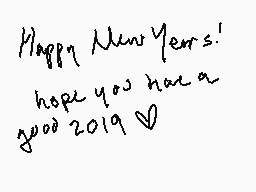 Happy New Years!
hope you have a
good 2019 ♡